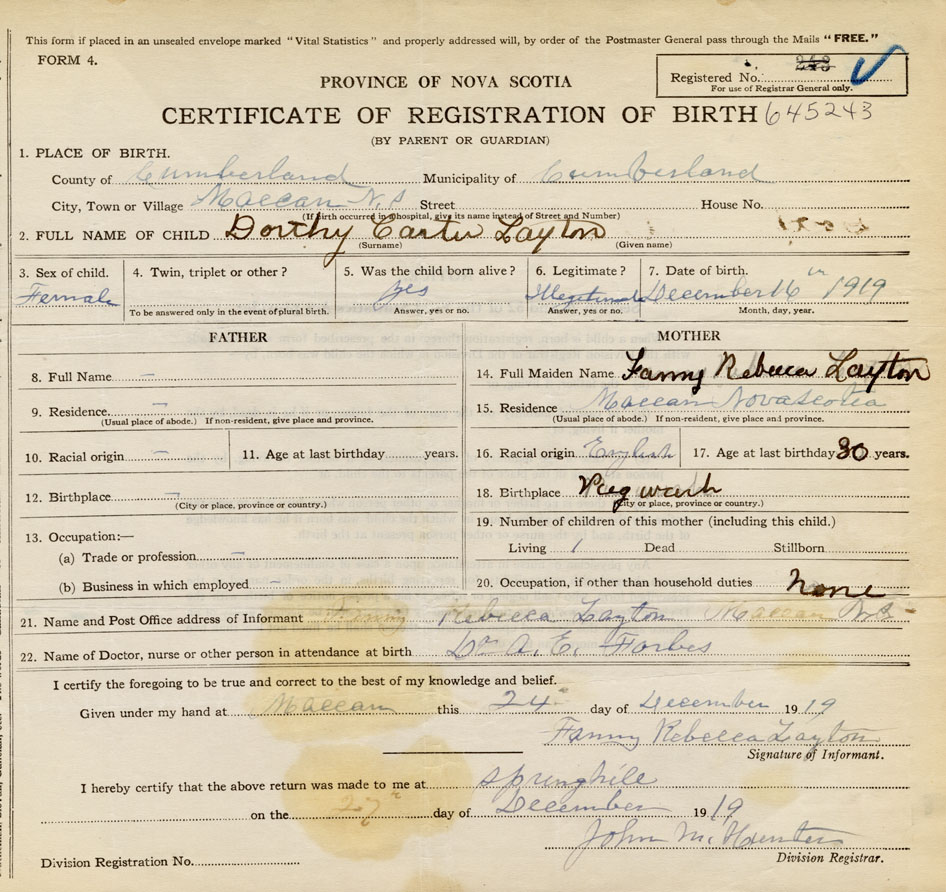 This form if placed in an unsealed envelope marked "Vital Statistics" and properly addressed will, by order of the Postmaster General pass through the Mails "FREE."
FORM 4.
Registered No. 243
For use of Registrar General only.
PROVINCE OF NOVA SCOTIA
CERTIFICATE OF REGISTRATION OF BIRTH 645243
(BY PARENT OR GUARDIAN)
1. PLACE OF BIRTH.
County of Cumberland Municipality of Cumberland
City, Town or Village Maccan N.S Street House No.
(If birth occurred in hospital, give its name instead of Street and Number)
2. FULL NAME OF CHILD Dorthy Carter Layton
(Surname) (Given name)
3. Sex of child. 4. Twin, triplet or other? 5. Was the child born alive? 6. Legitimate? 7. Date of birth.
Female yes Illegitimate December 16 1919
To be answered only in the event of plural birth. Answer, yes or no. Answer, yes or no. Month, day, year.
FATHER
8. Full Name —
9. Residence. —
(Usual place of abode.) If non-resident, give place and province.
10. Racial origin — 11. Age at last birthday years.
12. Birthplace —
(City or place, province or country.)
13. Occupation:—
(a) Trade or profession —
(b) Business in which employed —
MOTHER
14. Full Maiden Name Fanny Rebecca Layton
15. Residence Maccan Nova Scotia
(Usual place of abode.) If non-resident, give place and province.
16. Racial origin English 17. Age at last birthday 30 years.
18. Birthplace Pugwash
(City or place, province or country.)
19. Number of children of this mother (including this child.)
Living 1 Dead Stillborn
20. Occupation, if other than household duties none
21. Name and Post Office address of Informant Fanny Rebecca Layton Maccan N.S.
22. Name of Doctor, nurse or other person in attendance at birth Dr A. E. Forbes
I certify the foregoing to be true and correct to the best of my knowledge and belief.
Given under my hand at Maccan this 24 day of December 1919
Fanny Rebecca Layton
Signature of Informant.
I hereby certify that the above return was made to me at Springhill
on the 27 day of December 1919
John McHunter
Division Registration No. Division Registrar.